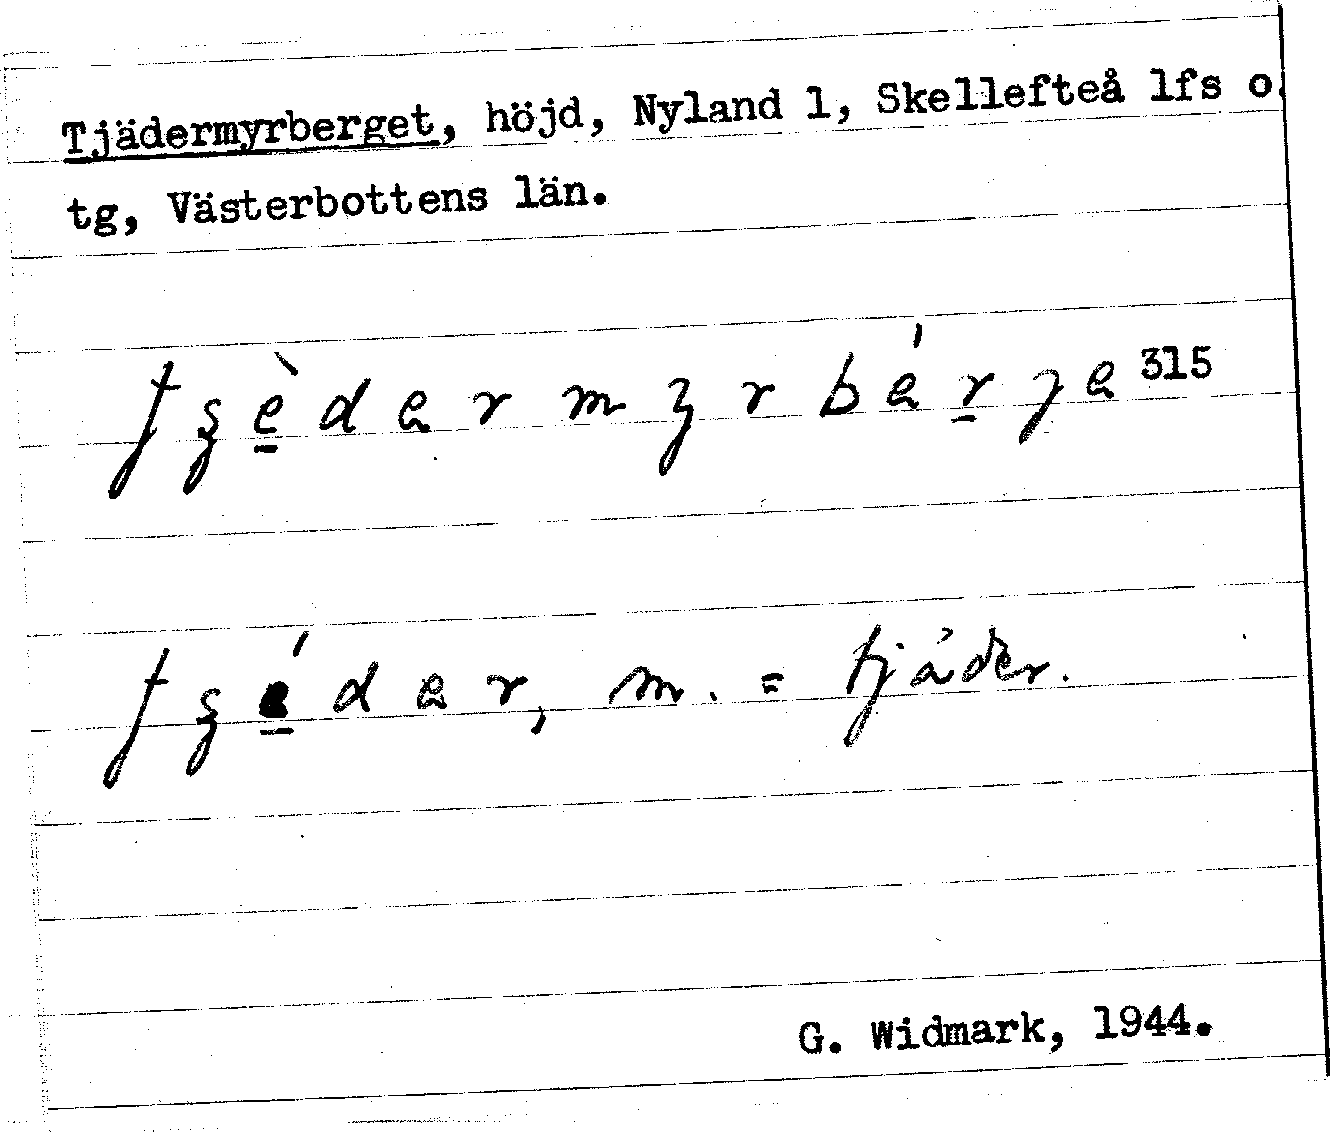 Tjädermyrberget, höjd, Nyland 1, Skellefteå lfs o.
tg, Västerbottens län.
315
m. = tjäder.
G. Widmark, 1944.